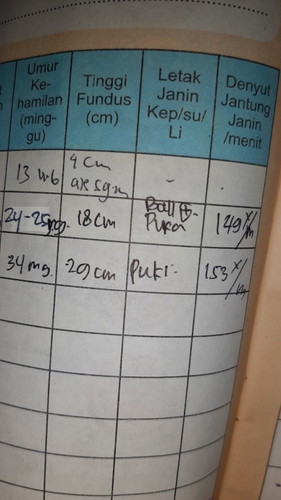 Umur
Ke-
hamilan
(ming-
gu)
Tinggi
Fundus
(cm)
Letak
Janin
Kep/su/
Li
Denyut
Jantung
Janin
/menit
13
9 cm
-
-
24-25 mg.
18 cm
Ball
Puka
149 x/m
34 mg.
29 cm
puki
153 x/m